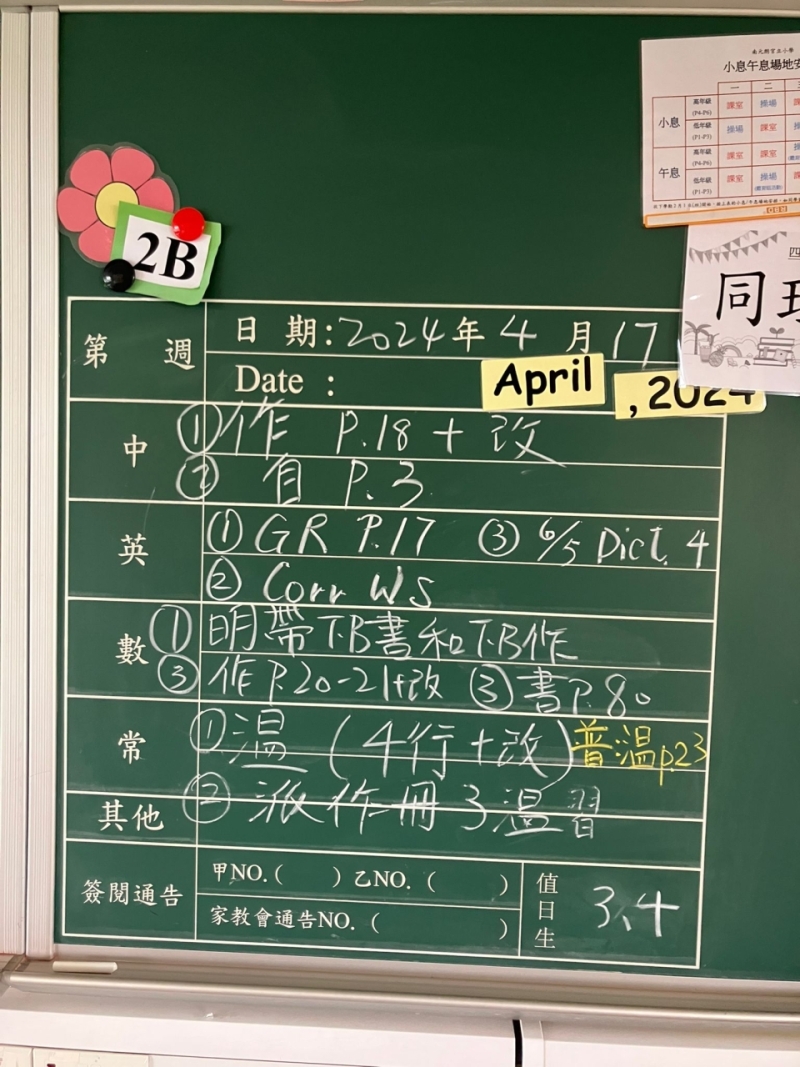 南元朗官立小學
小息午息場地安
一 二 三
小息 高年級 (P4-P6) 課室 操場 課
低年級 (P1-P3) 操場 課室 操
午息 高年級 (P4-P6) 課室 課室
低年級 (P1-P3) 課室 操場 課
四
同
2B
第 週 日 期:2024年 4 月 17
Date :
April , 2024
中 ①作 P.18 + 改
② 自 P.3
英 ① GR P.17 ③ 6/5 Dict. 4
② Corr WS
數 ① 明帶T.B書和T.B作
③ 作P.20-21+改 ③ 書P.80
常 ① 溫 (4行+改) 普溫p.23
其他 ② 派作冊 3溫習
簽閱通告 甲NO.( ) 乙NO. ( )
家教會通告NO. ( )
值日生 3、4